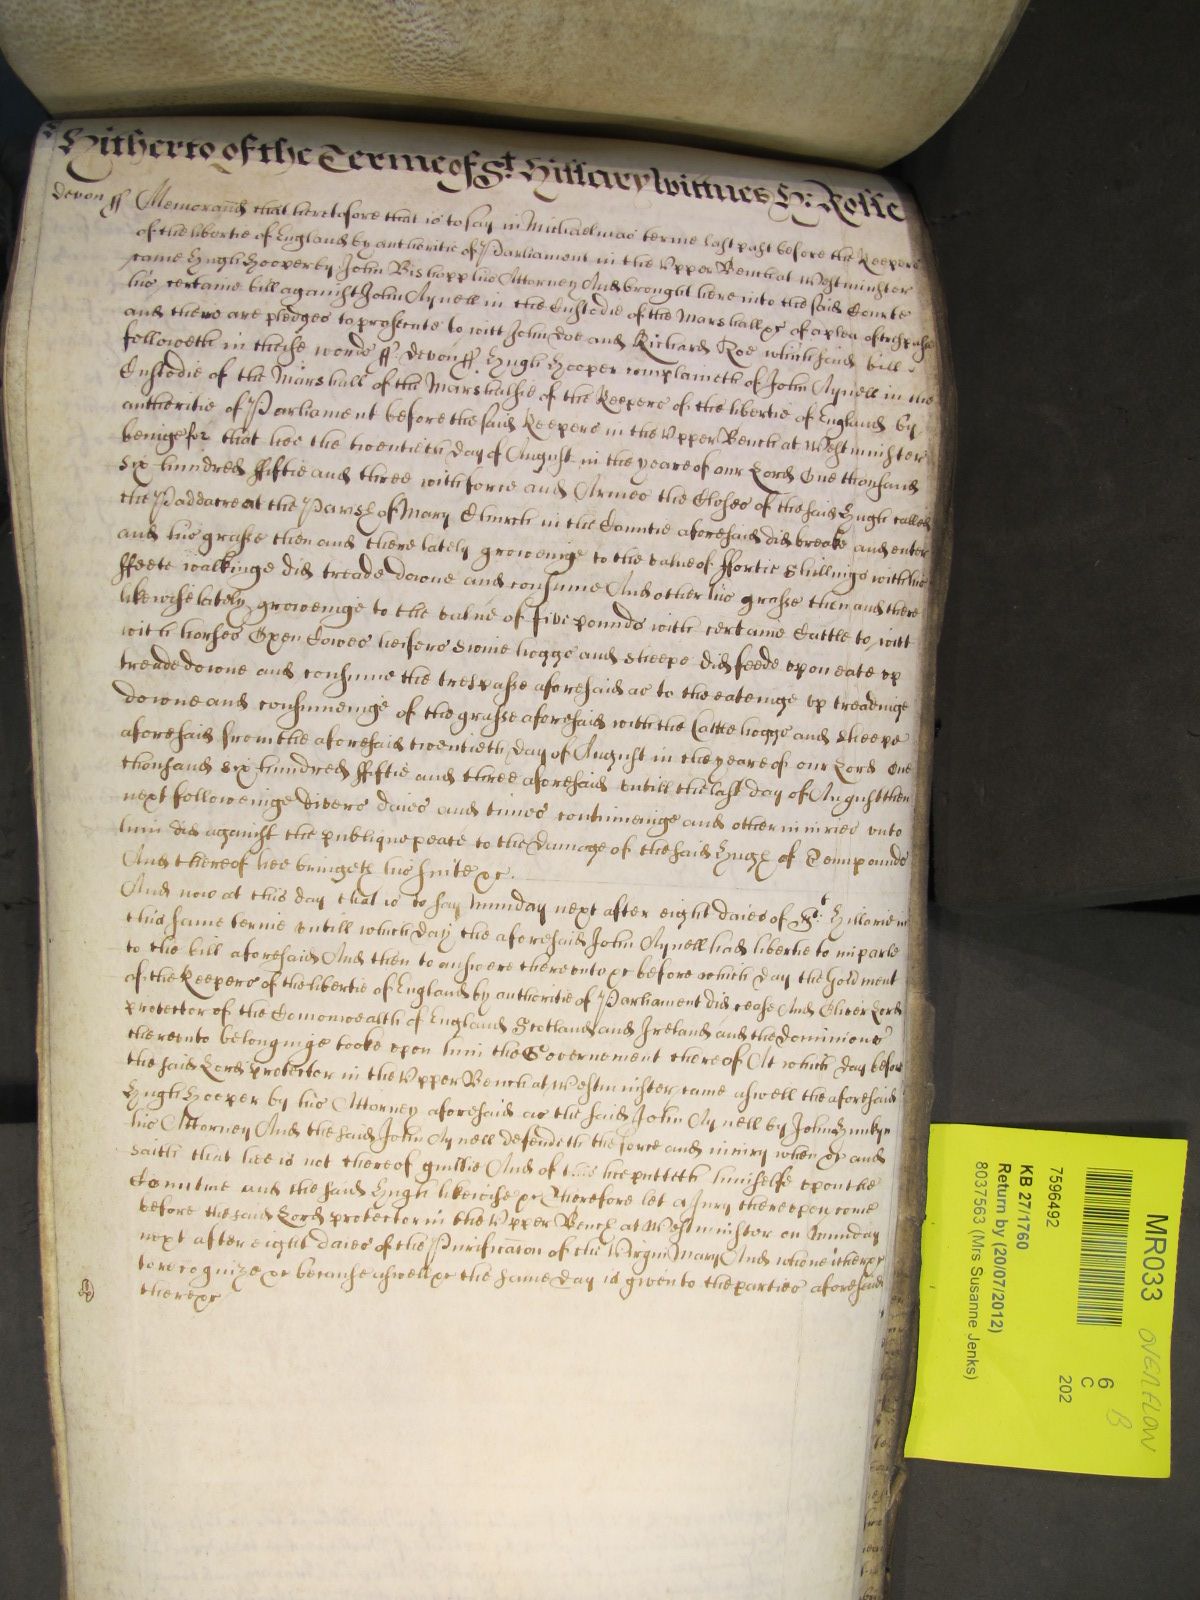 Hitherto of the Terme of St. Hillary witnes H: Rolle
Devon ss Memorand that heretofore that is to say in Michaelmas terme last past before the Keepers
of the libertie of England by authoritie of Parliament in the Upper Bench at Westminster
came Hugh Hooper by John Bishopp his Attorney And brought here into the said Courte
his certaine bill against John Aynell in the Custodie of the Marshall &c of a plea of trespasse
and there are pledges to prosecute to witt John Doe and Richard Roe which said bill
followeth in theise words ss Devon ss Hugh Hooper complaineth of John Aynell in the
Custodie of the Marshall of the Marshalsie of the Keepers of the libertie of England by
authoritie of Parliament before the said Keepers in the Upper Bench at Westminster
beinge for that hee the twentieth day of August in the yeare of our Lord One thousand
six hundred fiftie and three with force and Armes the Closes of the said Hugh called
the Paddacre at the Parish of Mary Church in the Countie aforesaid did breake and enter
and his grasse then and there lately growenige to the value of ffortie shillings with his
ffeete walkinge did treade downe and consume And other his grasse then and there
likewise lately groweinge to the value of five pounds with certaine Cattle to witt
with horses Oxen Cowes heifers swine hoggs and sheepe did feede upon eate up
treade downe and consume the trespasse aforesaid as to the eateinge up treadinge
downe and consumeinge of the grasse aforesaid with the Cattle hoggs and sheepe
aforesaid from the aforesaid twentieth day of August in the yeare of our Lord One
thousand six hundred fiftie and three aforesaid untill the last day of August then
next followeinge divers daies and times continueinge and other iniuries unto
him did against the publique peace to the damage of the said Hugh of Tenn pounds
And thereof hee bringeth his suite &c.
And now at this day that is to say Munday next after eight daies of St. Hillarie in
this same terme untill which day the aforesaid John Aynell had libertie to imparle
to the bill aforesaid And then to answere thereunto &c before which day the Govment
of the Keepers of the libertie of England by authoritie of Parliament did cease And Oliver Lord
Protector of the Comonwealth of England Scotland and Ireland and the dominions
thereunto belonginge tooke upon him the Governement thereof At which day before
the said Lord Protector in the Upper Bench at Westminster came aswell the aforesaid
Hugh Hooper by his Attorney aforesaid as the said John Aynell by John
his Attorney And the said John Aynell defendeth the force and iniury when &c and
saith that hee is not thereof guiltie And of this hee putteth himselfe upon the
Countrie and the said Hugh likewise &c Therefore let a Jury thereupon come
before the said Lord Protector in the Upper Bench at Westminster on Munday
next after eight daies of the Purificacon of the Virgin Mary And who neither &c
to recognize &c because aswell &c the same day is given to the parties aforesaid
there &c
MR033
OVERFLOW
B
6
C
202
7596492
KB 27/1760
Return by (20/07/2012)
8037563 (Mrs Susanne Jenks)